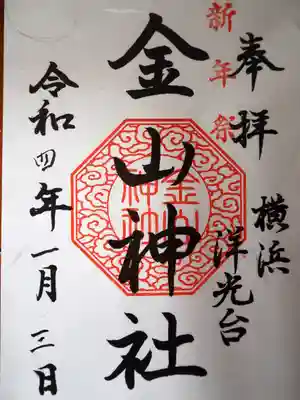 新年祭
奉拝
横浜
洋光台
金山神社
令和四年一月三日